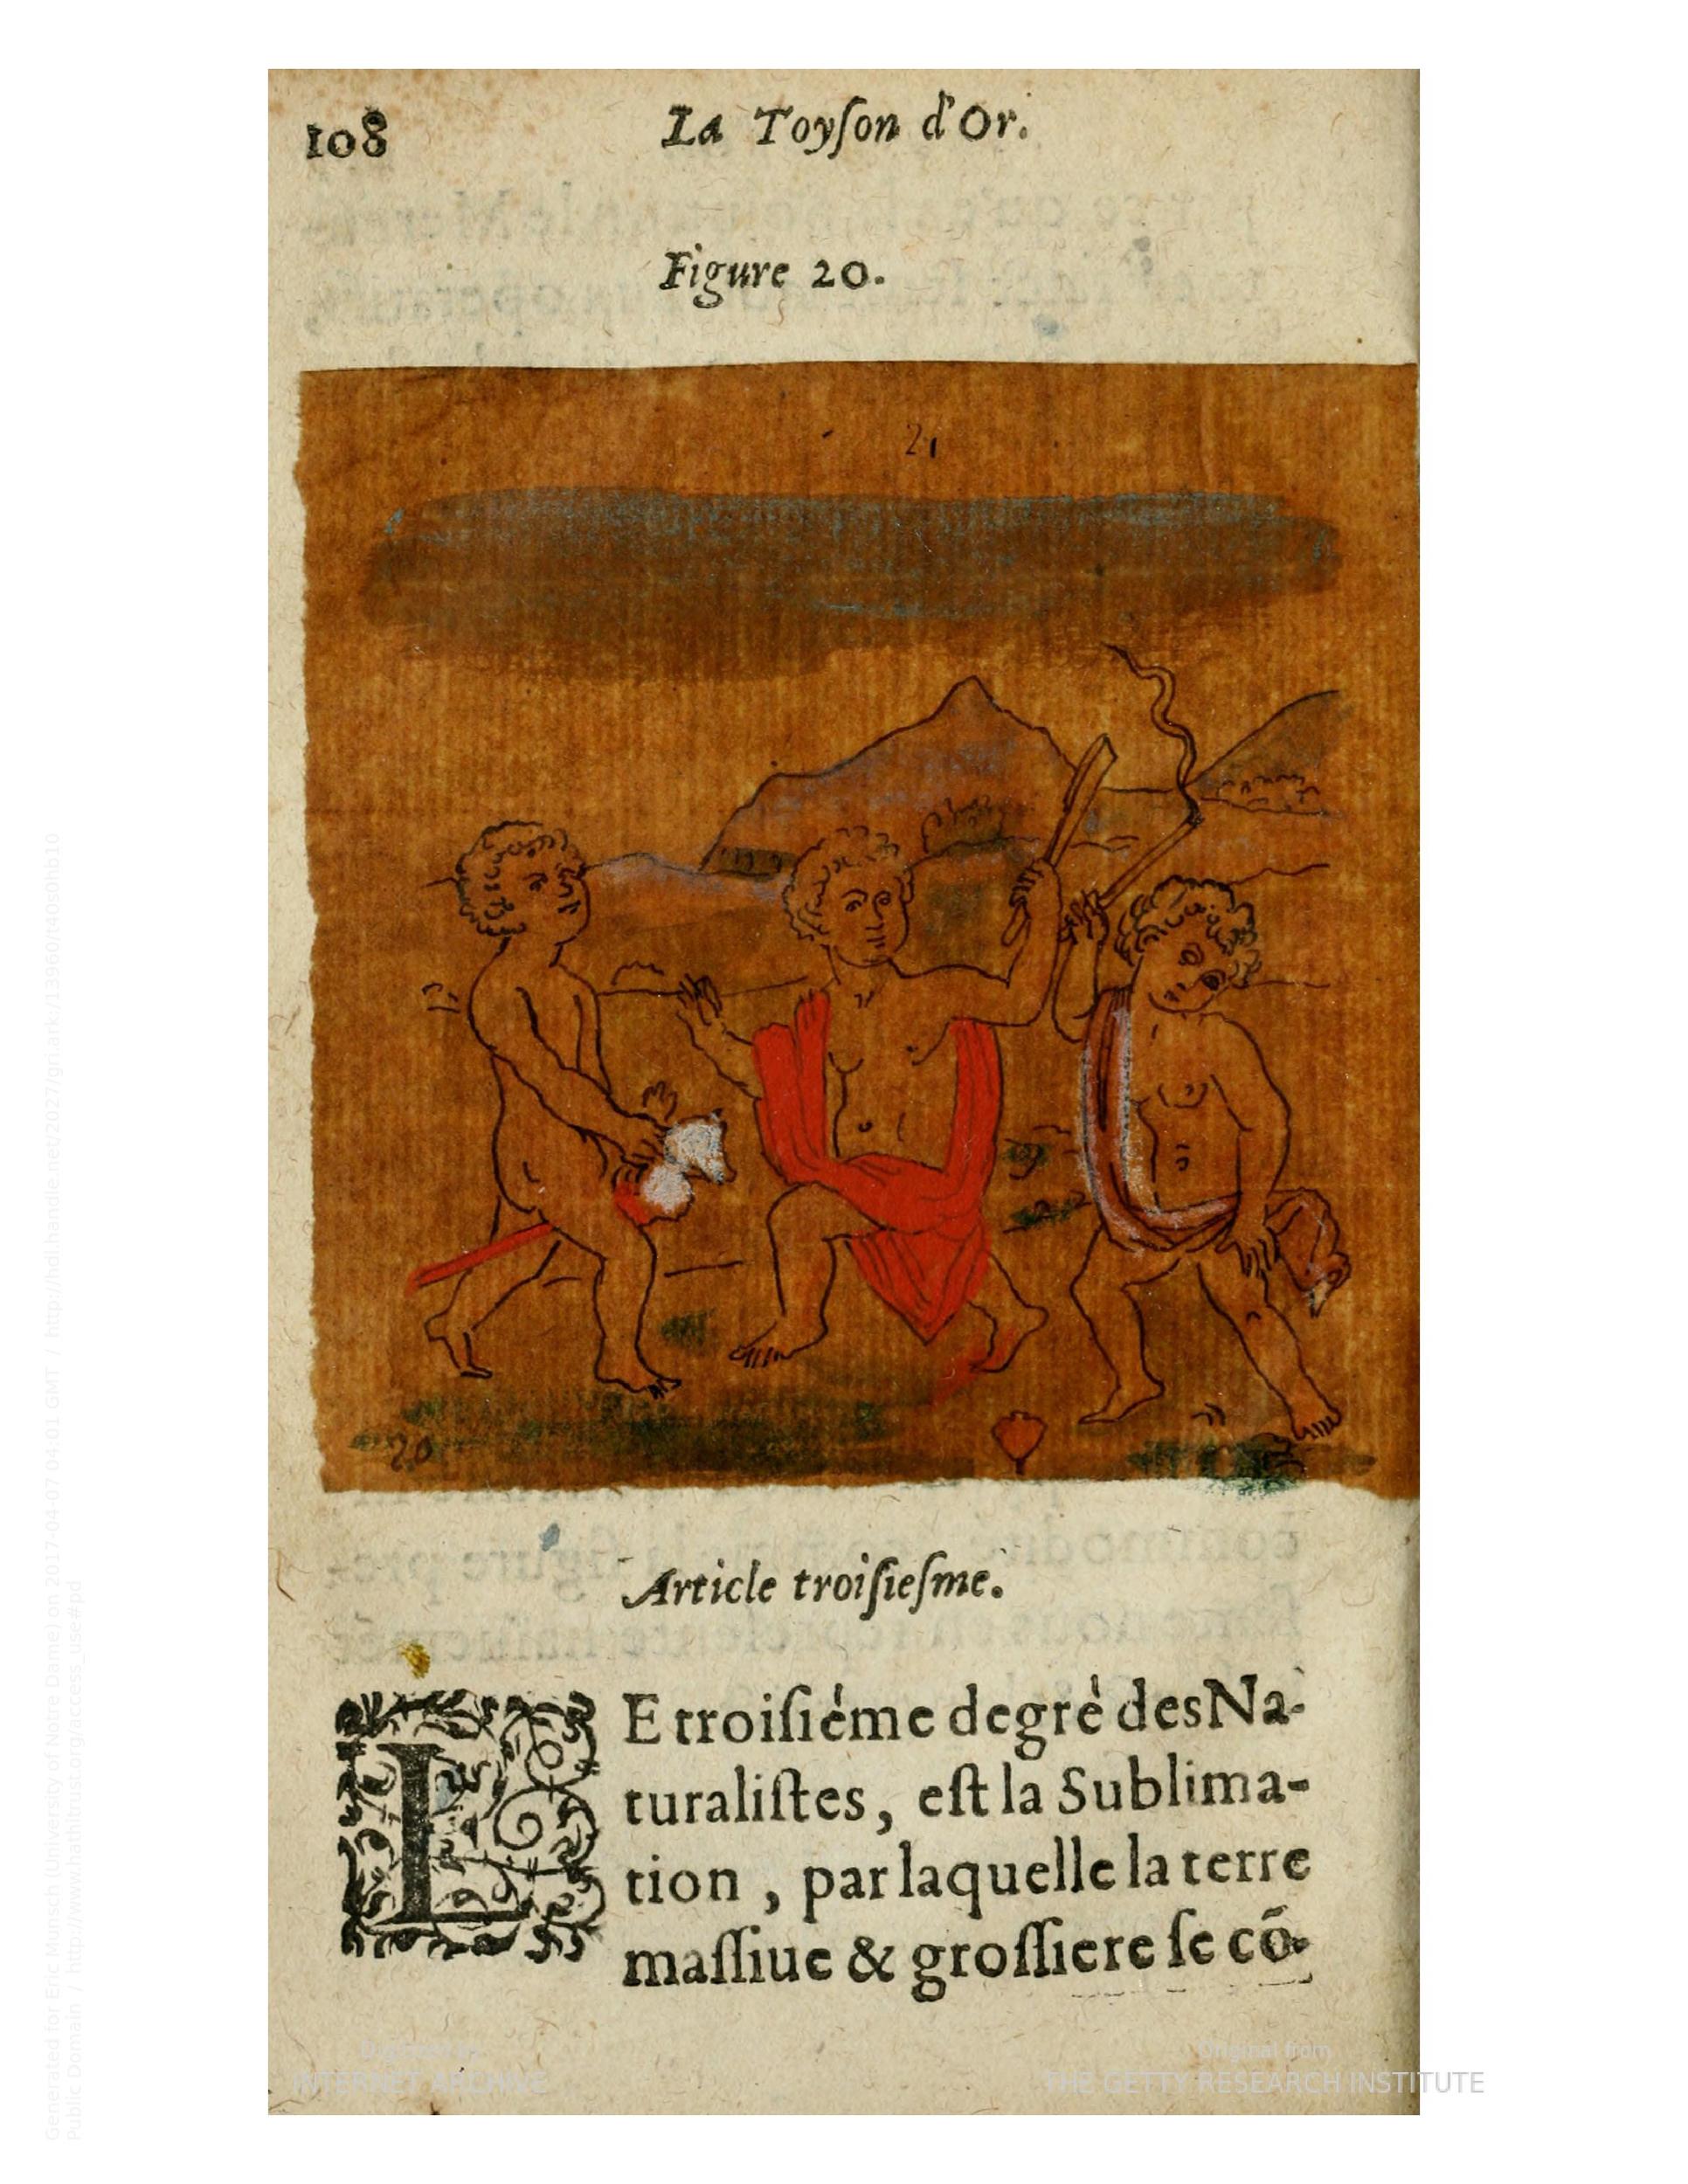 108
La Toyſon d'Or.
Figure 20.
21
20
Article troiſieſme.
LE troiſiéme degrè des Na-
turaliſtes, eſt la Sublima-
tion, par laquelle la terre
maſſiue & groſſiere ſe cō-
Original from
INTERNET ARCHIVE
THE GETTY RESEARCH INSTITUTE
Generated for Eric Munsch (University of Notre Dame) on 2017-04-07 04:01 GMT / http://hdl.handle.net/2027/gri.ark:/13960/t40s0hb10
Public Domain / http://www.hathitrust.org/access_use#pd